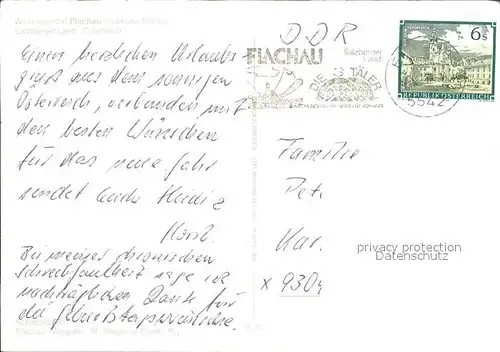 Flachau
Salzburger Land - Österreich
DDR
FLACHAU
Salzburger
Land
DIE 3 TÄLER
5542
6s
REPUBLIK ÖSTERREICH
Einen herzlichen Urlaubs-
gruß aus dem sonnigen
Österreich, verbunden mit
den besten Wünschen
für das neue Jahr
sendet Euch Heidi &
Horst.
Bei meiner chronischen
Schreibfaulheit sage ich
nachträglichen Dank für
die Geburtstagswünsche.
Familie
Pet.
Kar.
x 930
privacy protection
Datenschutz